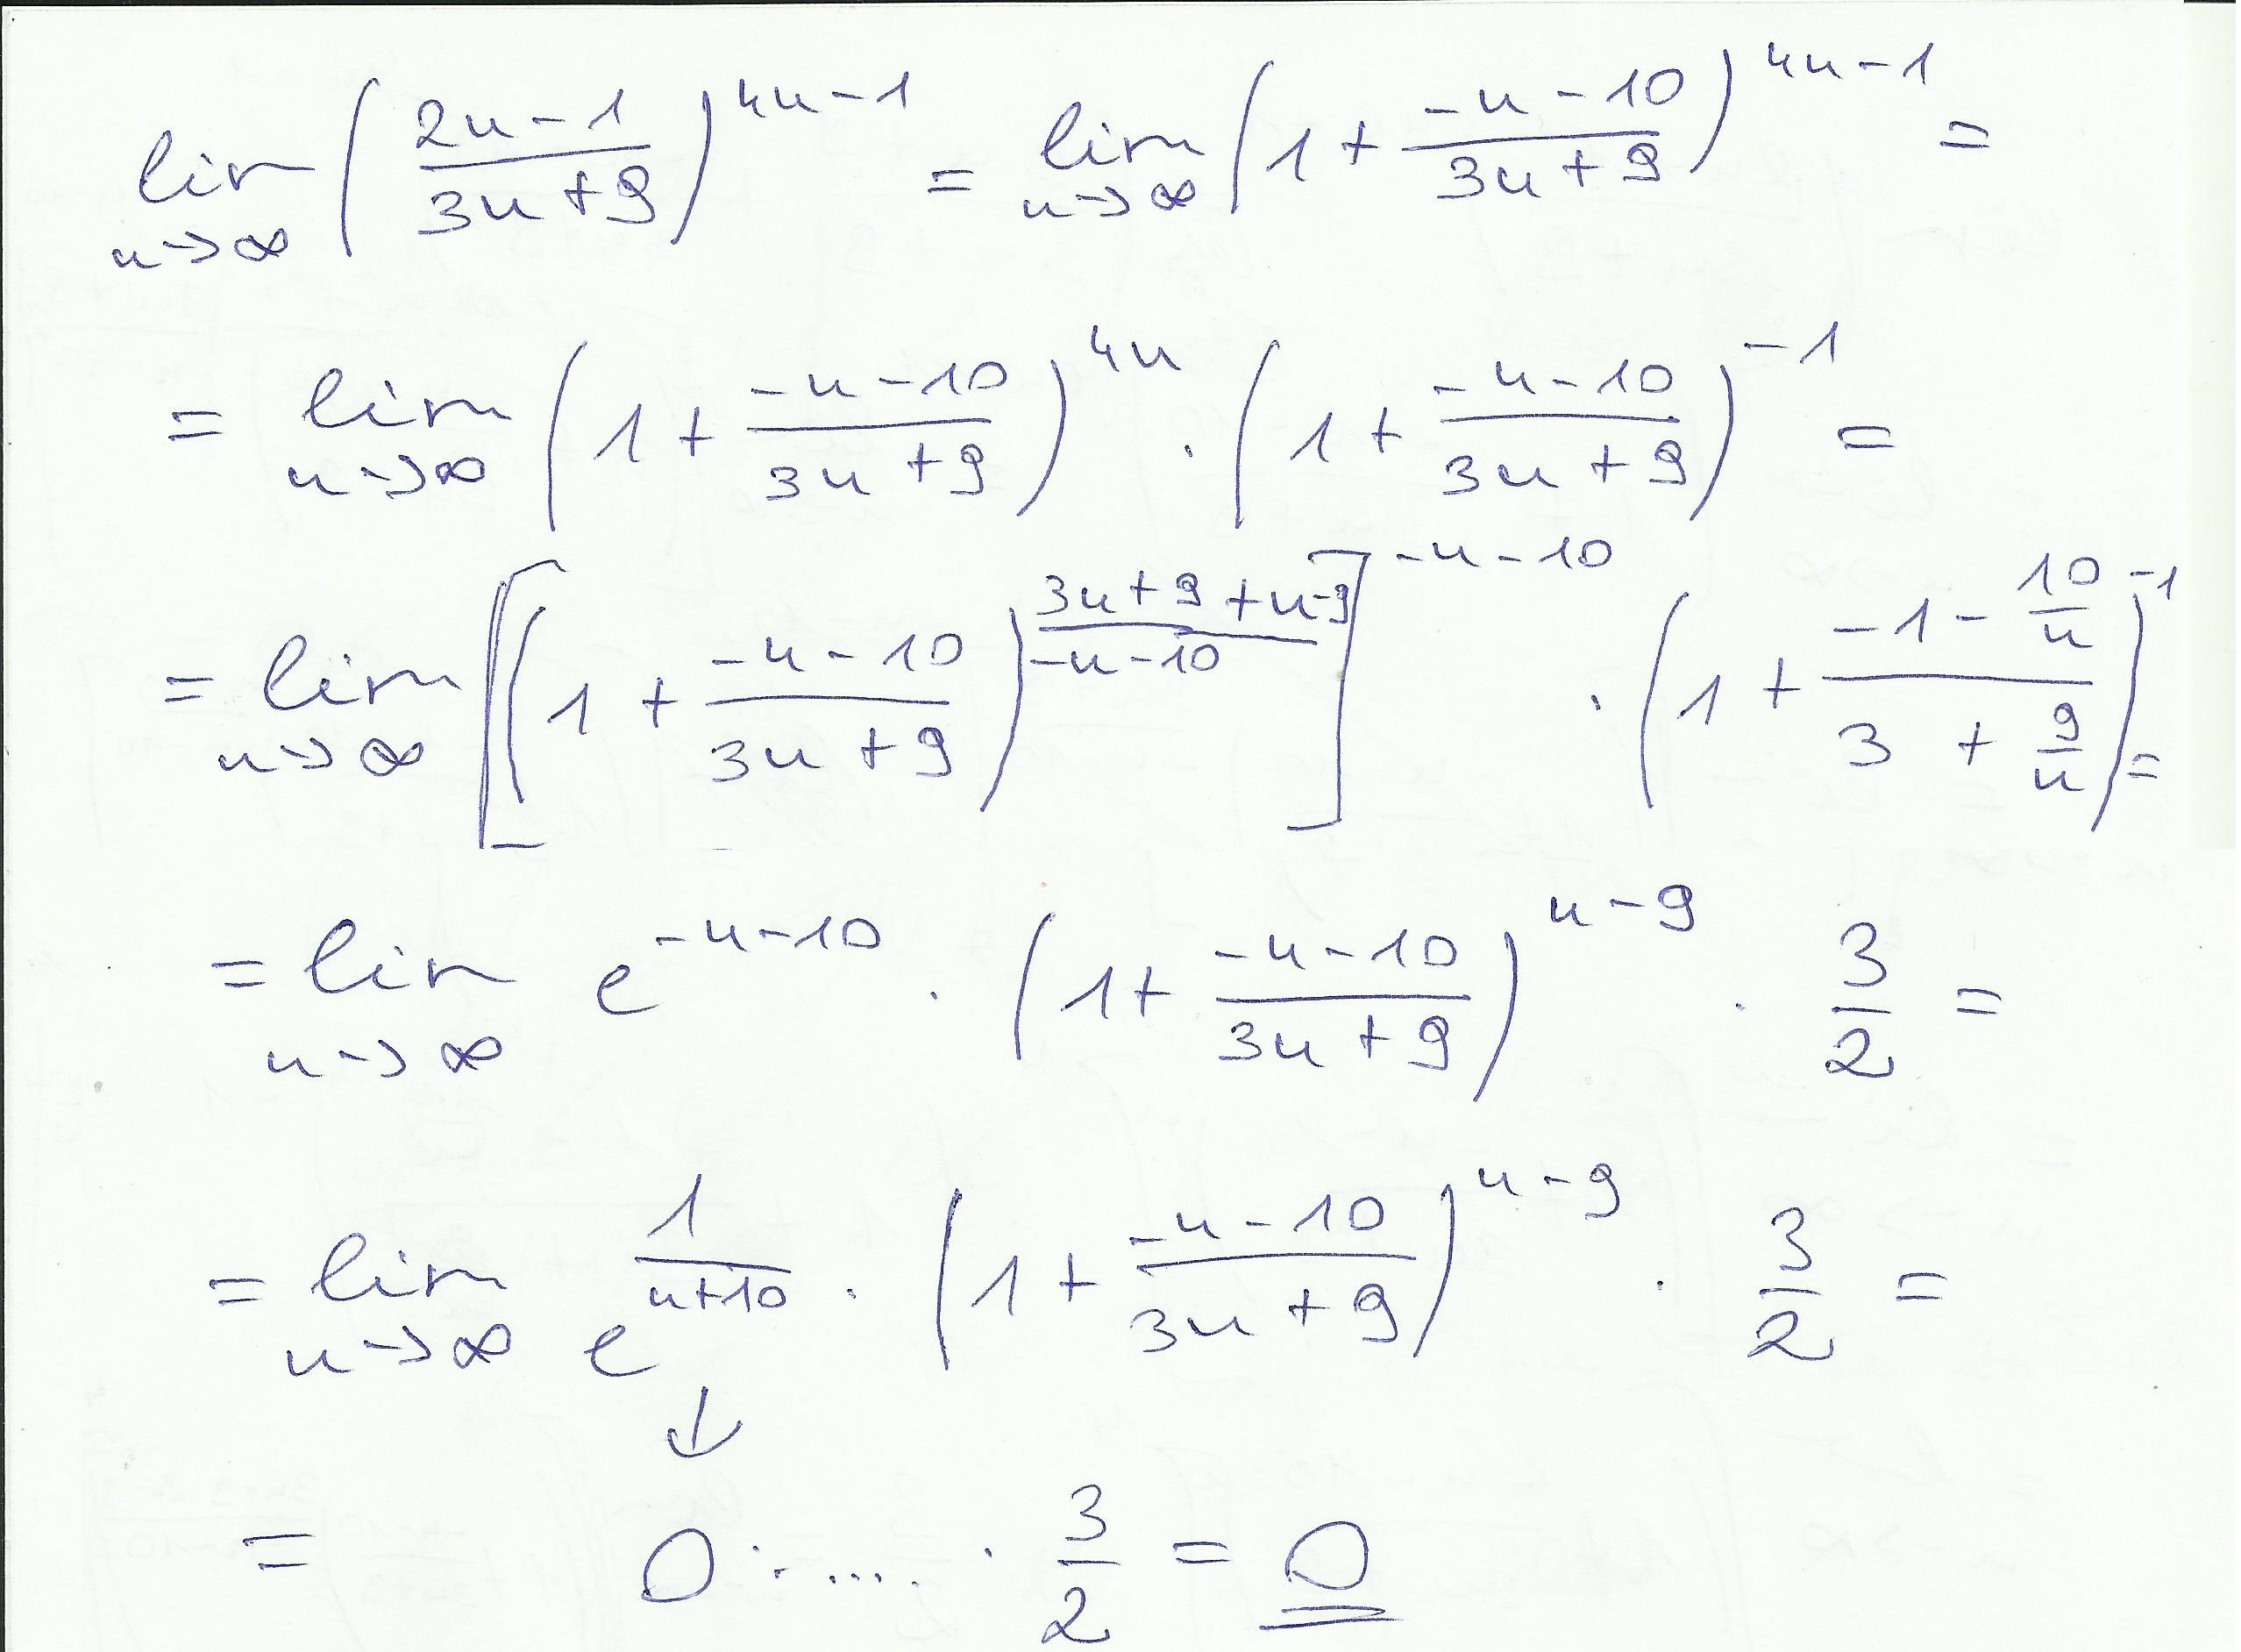 lim n→∞ (2n-1 / 3n+9)^4n-1 = lim n→∞ (1 + -n-10 / 3n+9)^4n-1 =
= lim n→∞ (1 + -n-10 / 3n+9)^4n · (1 + -n-10 / 3n+9)^-1 =
= lim n→∞ [(1 + -n-10 / 3n+9)^3n+9+n-9 / -n-10]^-n-10 · (1 + -1 - 10/n / 3 + 9/n)^-1 =
= lim n→∞ e^-n-10 · (1 + -n-10 / 3n+9)^n-9 · 3/2 =
= lim n→∞ e^1/n+10 · (1 + -n-10 / 3n+9)^n-9 · 3/2 =
↓
= 0 · .... · 3/2 = 0